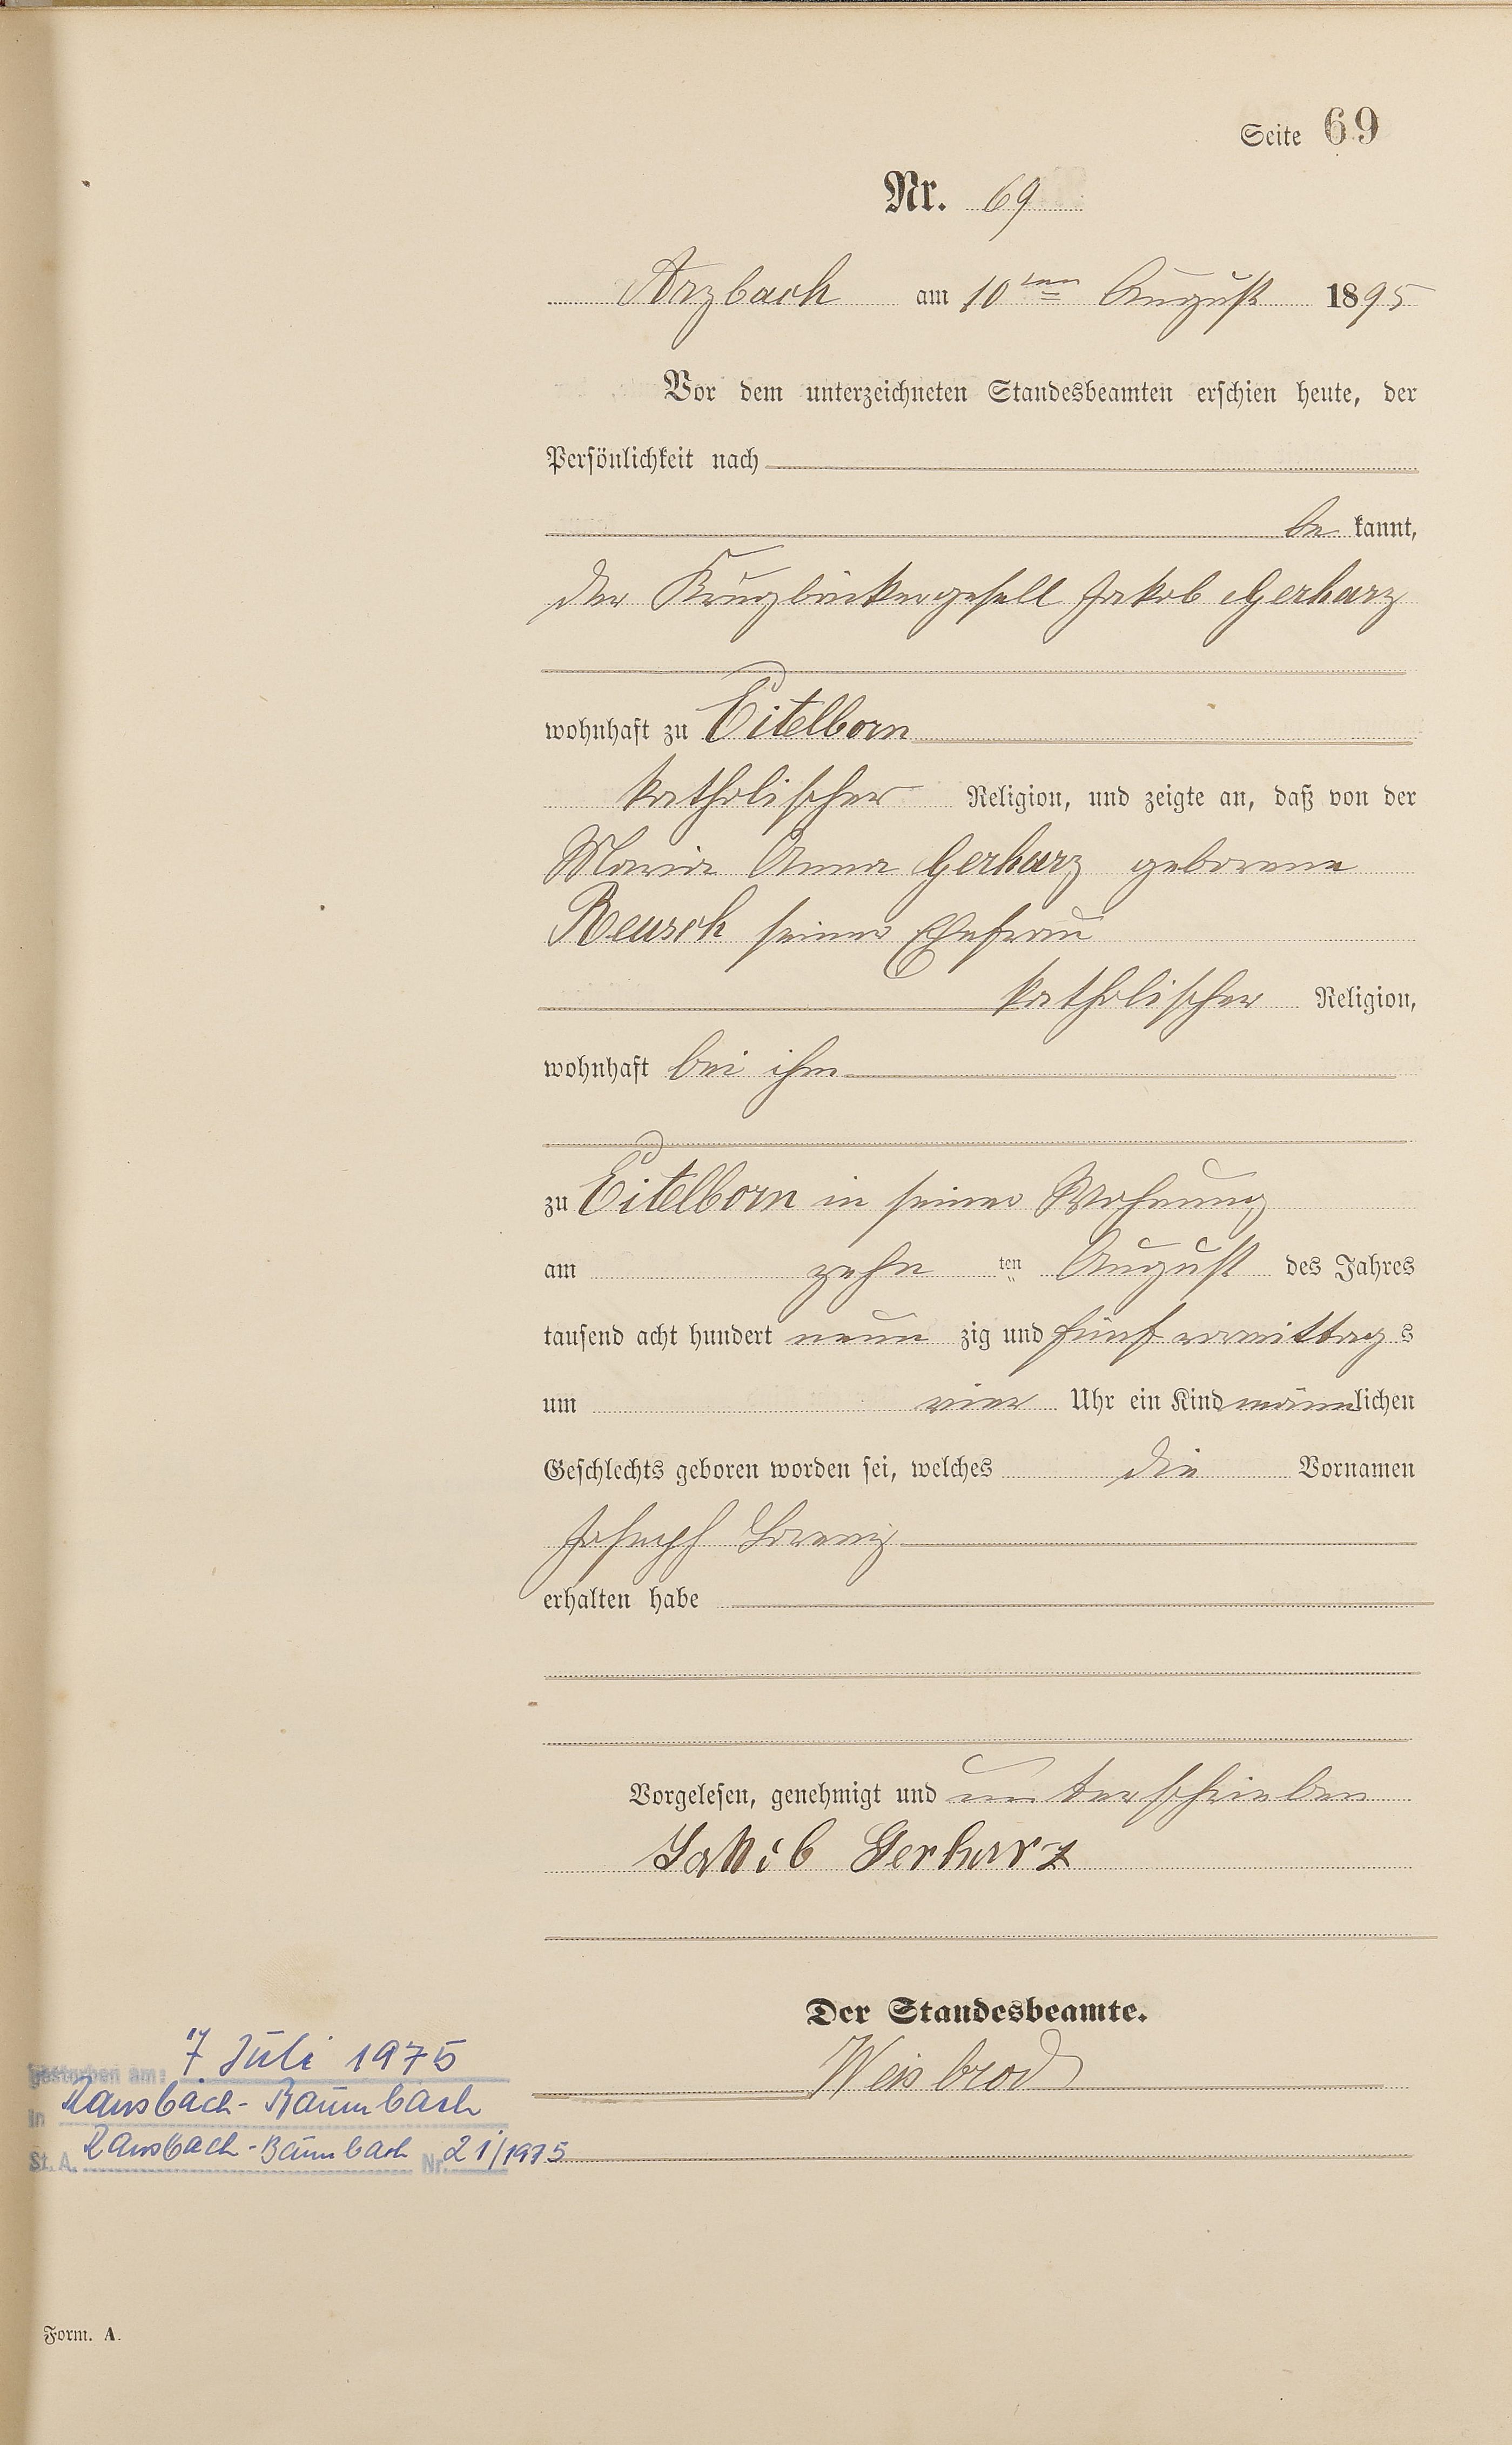 Seite 69
Nr. 69
Arzbach am 10ten August 1895
Vor dem unterzeichneten Standesbeamten erschien heute, der
Persönlichkeit nach
be kannt,
der Krugbäckergesell Jakob Gerharz
wohnhaft zu Eitelborn
katholischer Religion, und zeigte an, daß von der
Maria Anna Gerharz geborene
Reusch seiner Ehefrau
katholischer Religion,
wohnhaft bei ihm
zu Eitelborn in seiner Wohnung
am zehn ten August des Jahres
tausend acht hundert neun zig und fünf vormittags
um vier Uhr ein Kind männlichen
Geschlechts geboren worden sei, welches die Vornamen
Joseph Lorenz
erhalten habe
Vorgelesen, genehmigt und unterschrieben
Jakob Gerharz
Der Standesbeamte.
Weisbrod
gestorben am: 7 Juli 1975
in Ransbach-Baumbach
St. A. Ransbach-Baumbach Nr. 21/1975
Form. A.